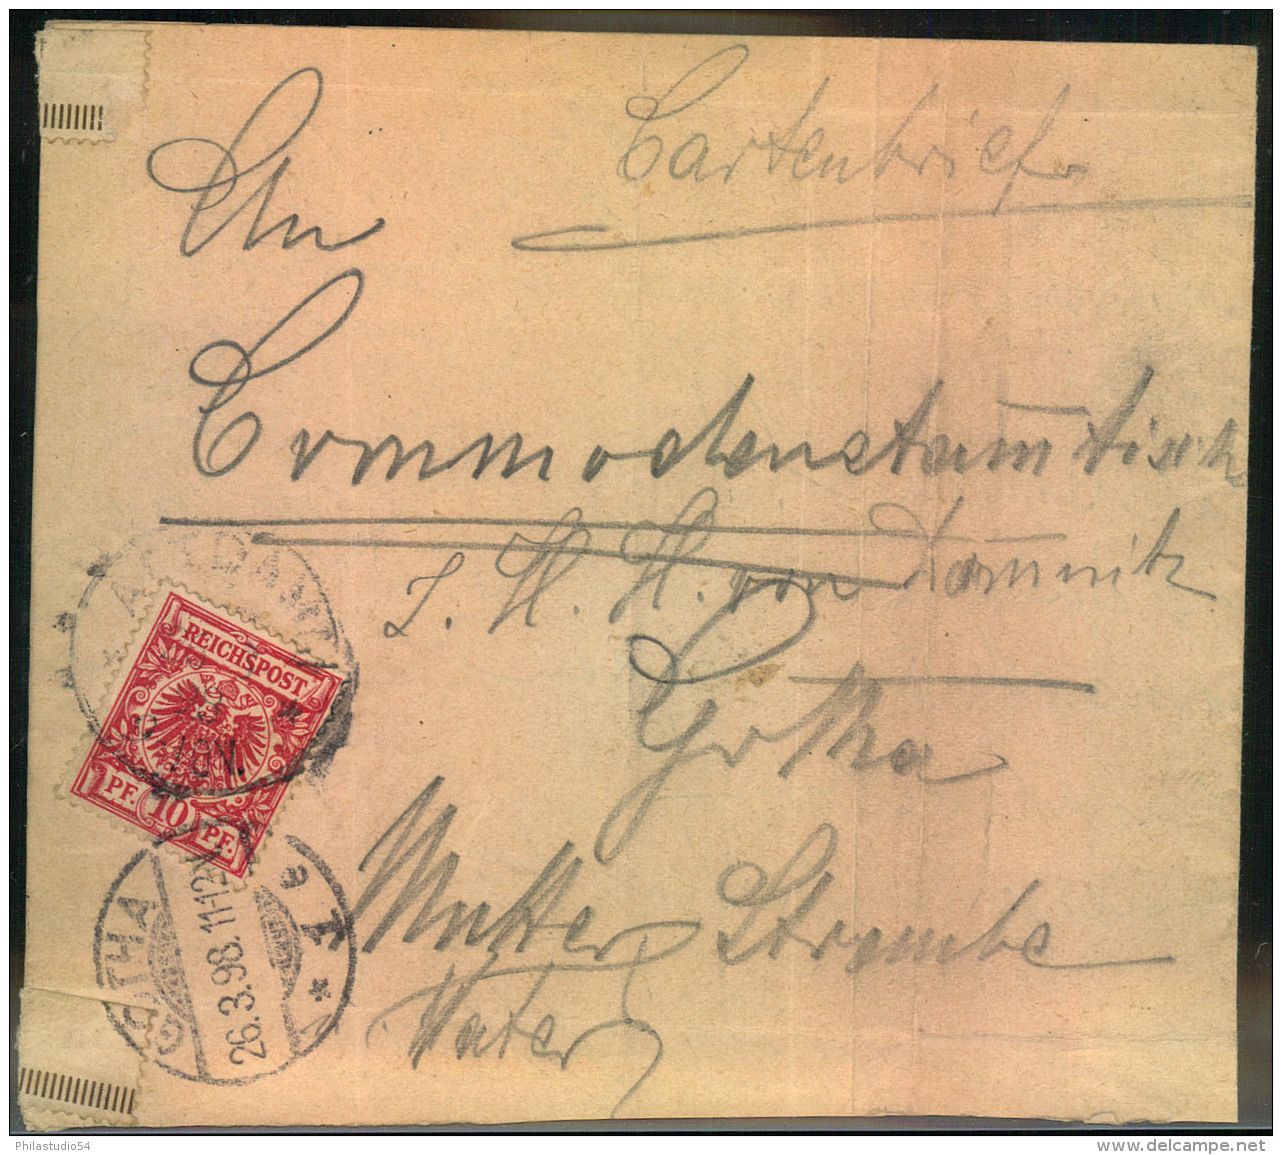 Cartenbrief
An
Commodenstammtisch
z. H. H. von
Gotha
Mutter Strombe
Vater
AMSDAM
REICHSPOST
10
PF. 10 PF.
GOTHA 1 e
26.3.98. 11-12V
Philastudio54
delcampe.net